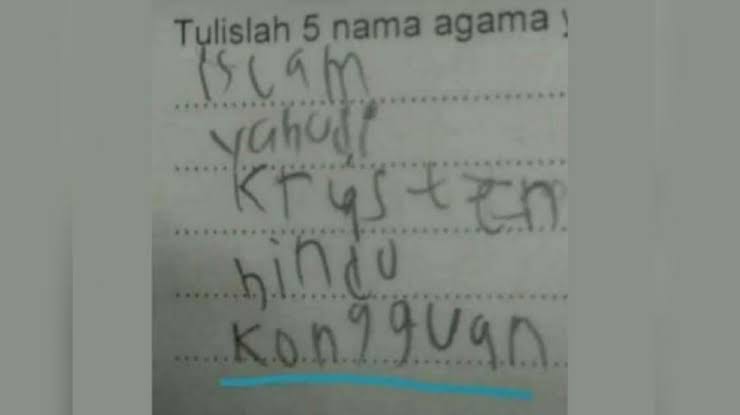 Tulislah 5 nama agama
Islam
yahudi
Krysten
hindu
Kongguan